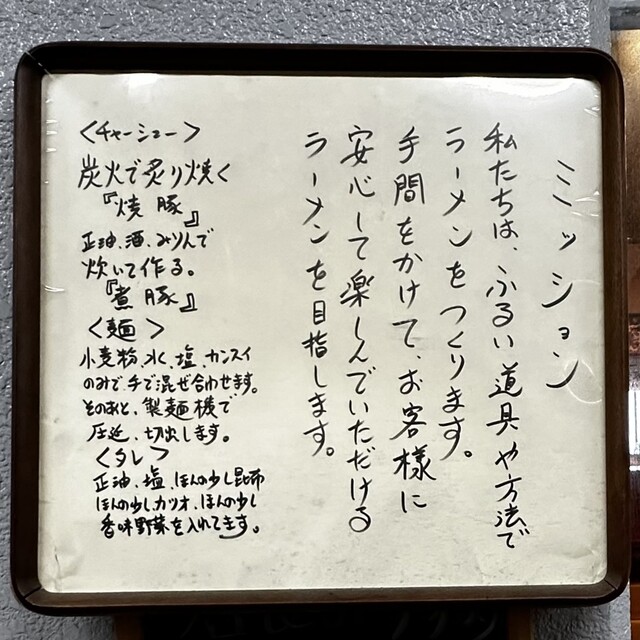 ミッション
私たちは、ふるい道具や方法で
ラーメンをつくります。
手間をかけて、お客様に
安心して楽しんでいただける
ラーメンを目指します。
<チャーシュー>
炭火で炙り焼く
『焼豚』
正油、酒、みりんで
炊いて作る。
『煮豚』
<麺>
小麦粉、水、塩、カンスイ
のみで手で混ぜ合わせます。
そのあと、製麺機で
圧延、切出します。
<タレ>
正油、塩、ほんの少し昆布
ほんの少しカツオ、ほんの少し
香味野菜を入れてます。